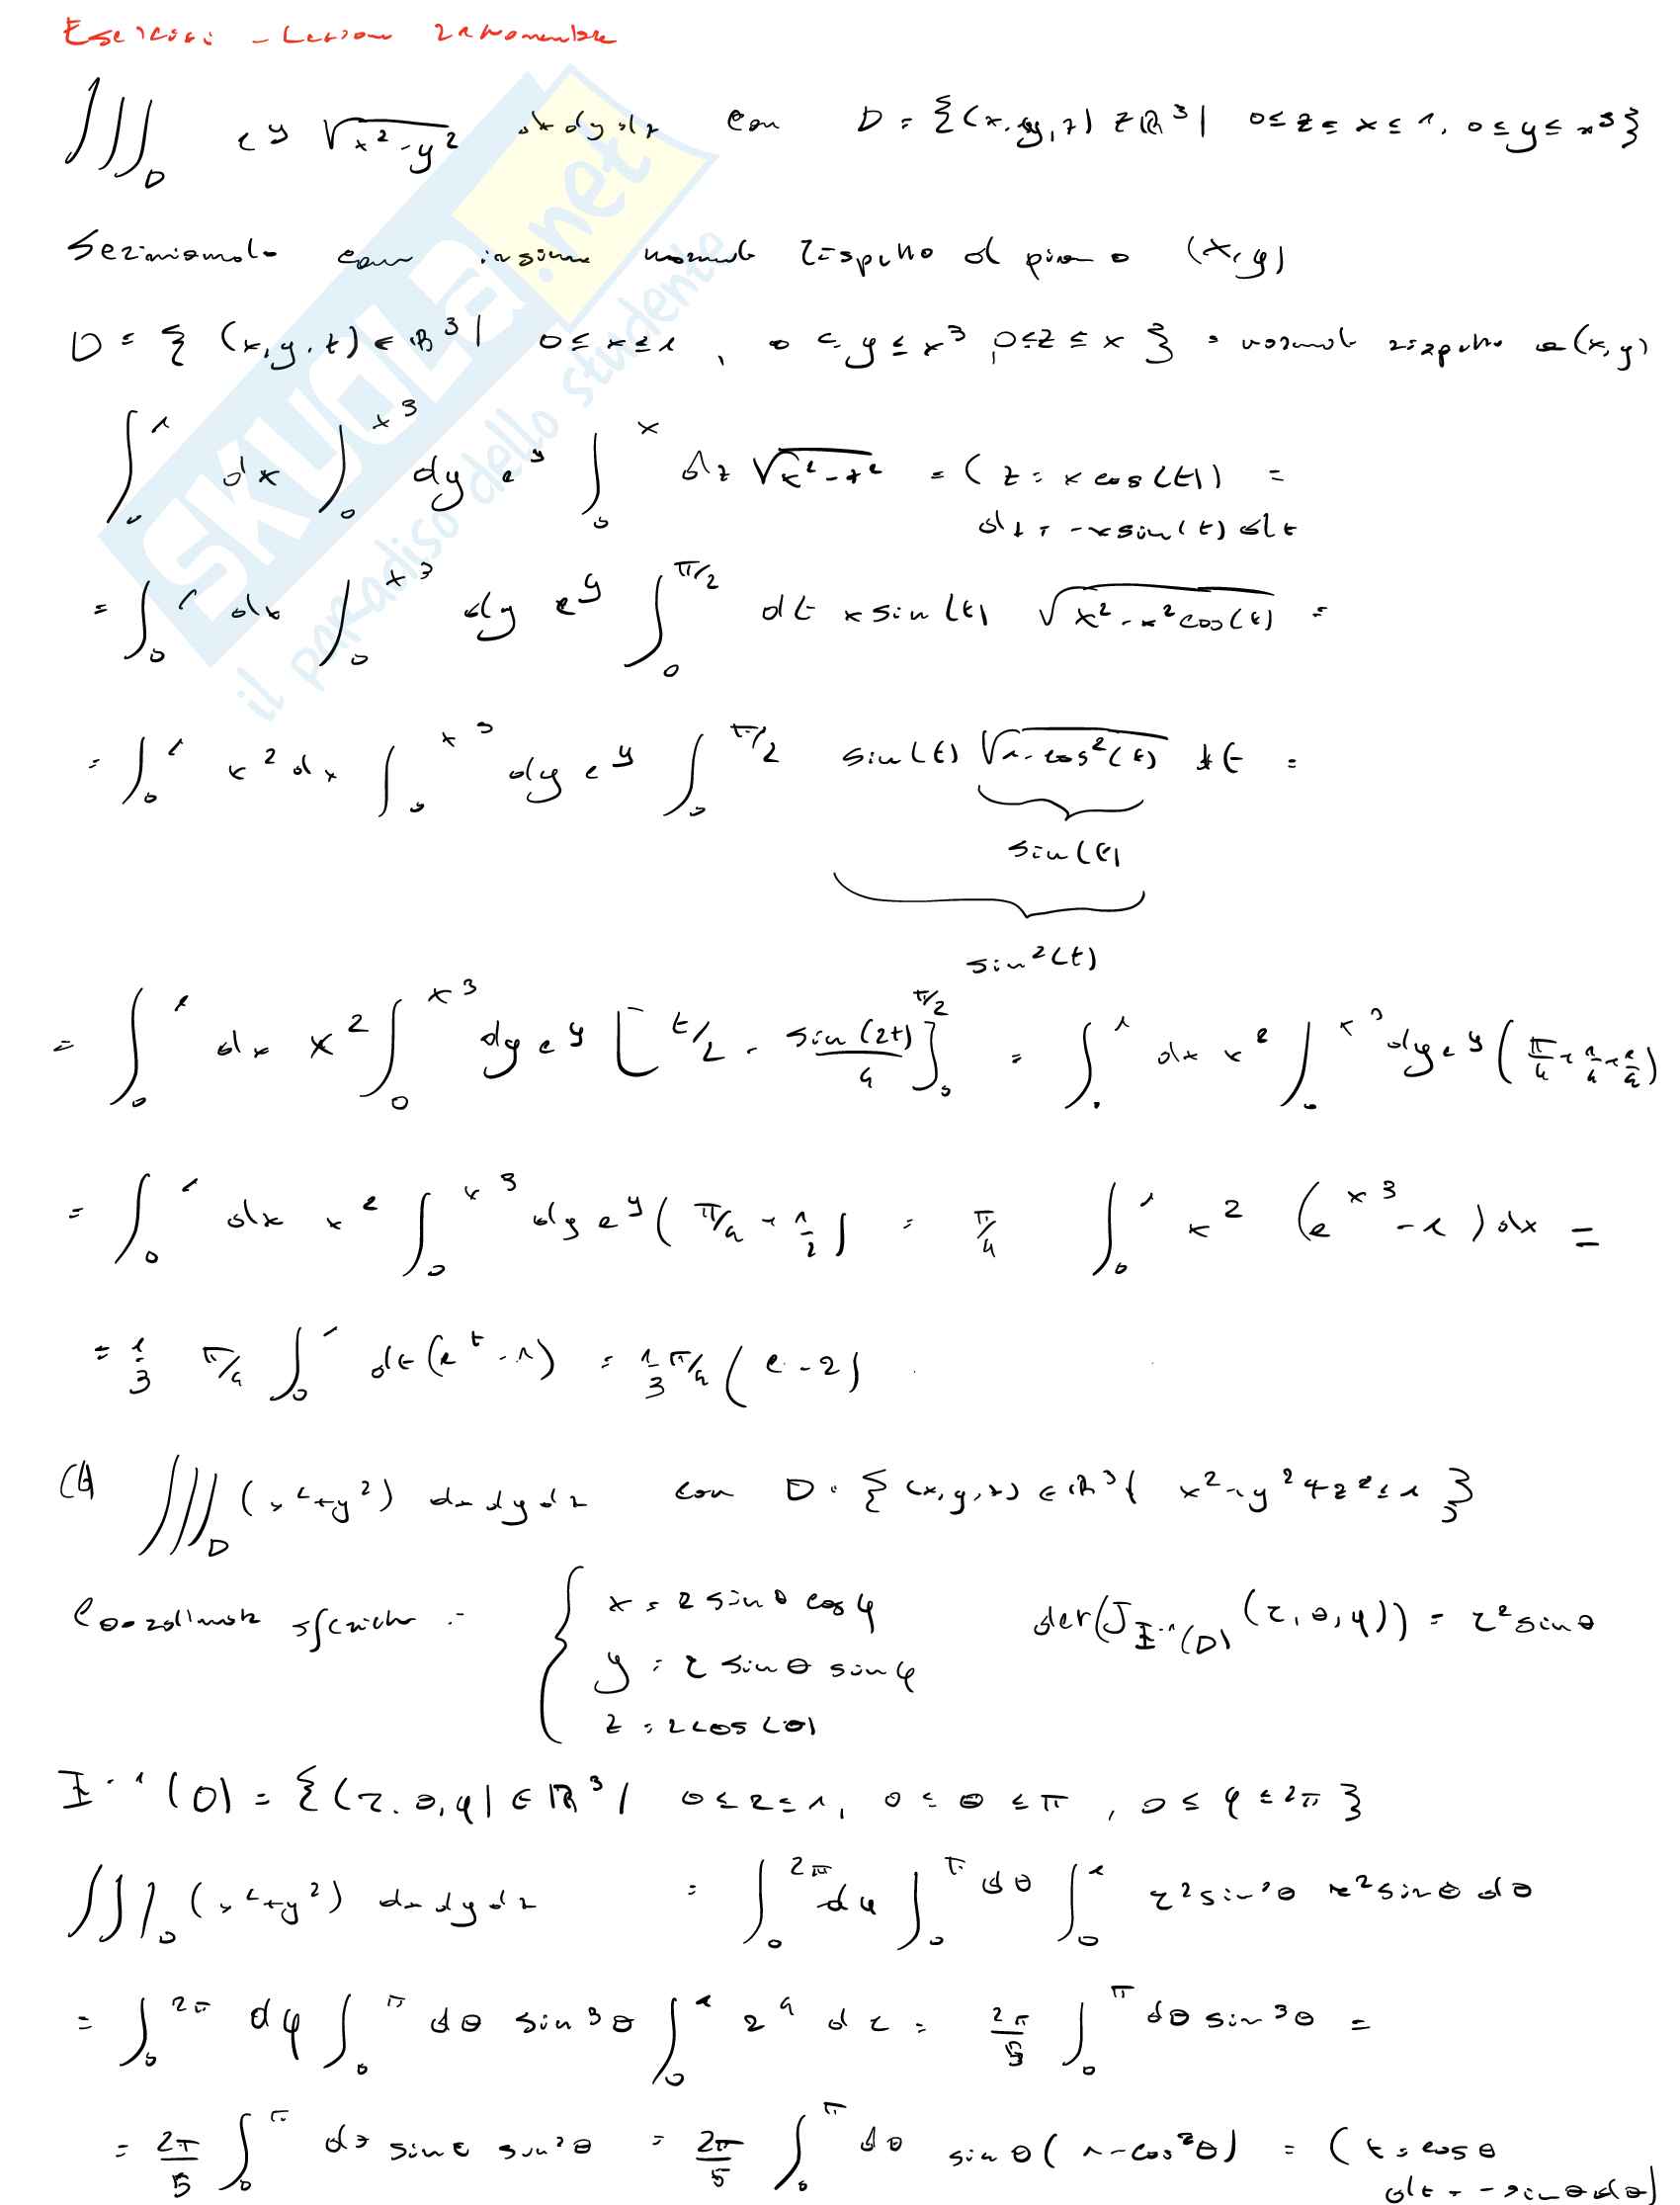 Esercizi - Lezione 21 Novembre
∫∫∫_D e^y √(x²-y²) dx dy dz con D = {(x,y,z) ∈ ℝ³ | 0≤z≤x≤1, 0≤y≤x³}
Sezioniamolo come insieme normale rispetto al piano (x,y)
D = {(x,y,z) ∈ ℝ³ | 0≤x≤1, 0≤y≤x³, 0≤z≤x} = normale rispetto a (x,y)
∫_0^1 dx ∫_0^{x³} dy e^y ∫_0^x dz √(x²-z²) = (z = x cos(t)) =
dz = -x sin(t) dt
= ∫_0^1 dx ∫_0^{x³} dy e^y ∫_0^{π/2} dt x sin(t) √(x²-x²cos(t)) =
= ∫_0^1 x² dx ∫_0^{x³} dy e^y ∫_0^{π/2} sin(t) √(1-cos²(t)) dt =
sin(t)
sin²(t)
= ∫_0^1 dx x² ∫_0^{x³} dy e^y [t/2 - sin(2t)/4]_0^{π/2} = ∫_0^1 dx x² ∫_0^{x³} dy e^y (π/4 + 1/4 + 1/4)
= ∫_0^1 dx x² ∫_0^{x³} dy e^y (π/4 + 1/2) = π/4 ∫_0^1 x² (e^{x³} - 1) dx =
= 1/3 π/4 ∫_0^1 dt (e^t - 1) = 1/3 π/4 (e - 2)
∫∫∫_D (x²+y²) dx dy dz con D = {(x,y,z) ∈ ℝ³ | x²+y²+z² ≤ 1}
Coordinate sferiche: { x = r sinθ cosφ det(J_{Φ^-1(D)} (r,θ,φ)) = r² sinθ
y = r sinθ sinφ
z = r cos(θ)
Φ^-1(D) = {(r,θ,φ) ∈ ℝ³ | 0≤r≤1, 0≤θ≤π, 0≤φ≤2π}
∫∫∫_D (x²+y²) dx dy dz = ∫_0^{2π} dφ ∫_0^π dθ ∫_0^1 r² sin²θ r² sinθ dθ
= ∫_0^{2π} dφ ∫_0^π dθ sin³θ ∫_0^1 r⁴ dr = 2π/5 ∫_0^π dθ sin³θ =
= 2π/5 ∫_0^π dθ sinθ sin²θ = 2π/5 ∫_0^π dθ sinθ (1-cos²θ) = (t = cosθ
dt = -sinθ dθ)
SKUOLA.net
il paradiso dello studente